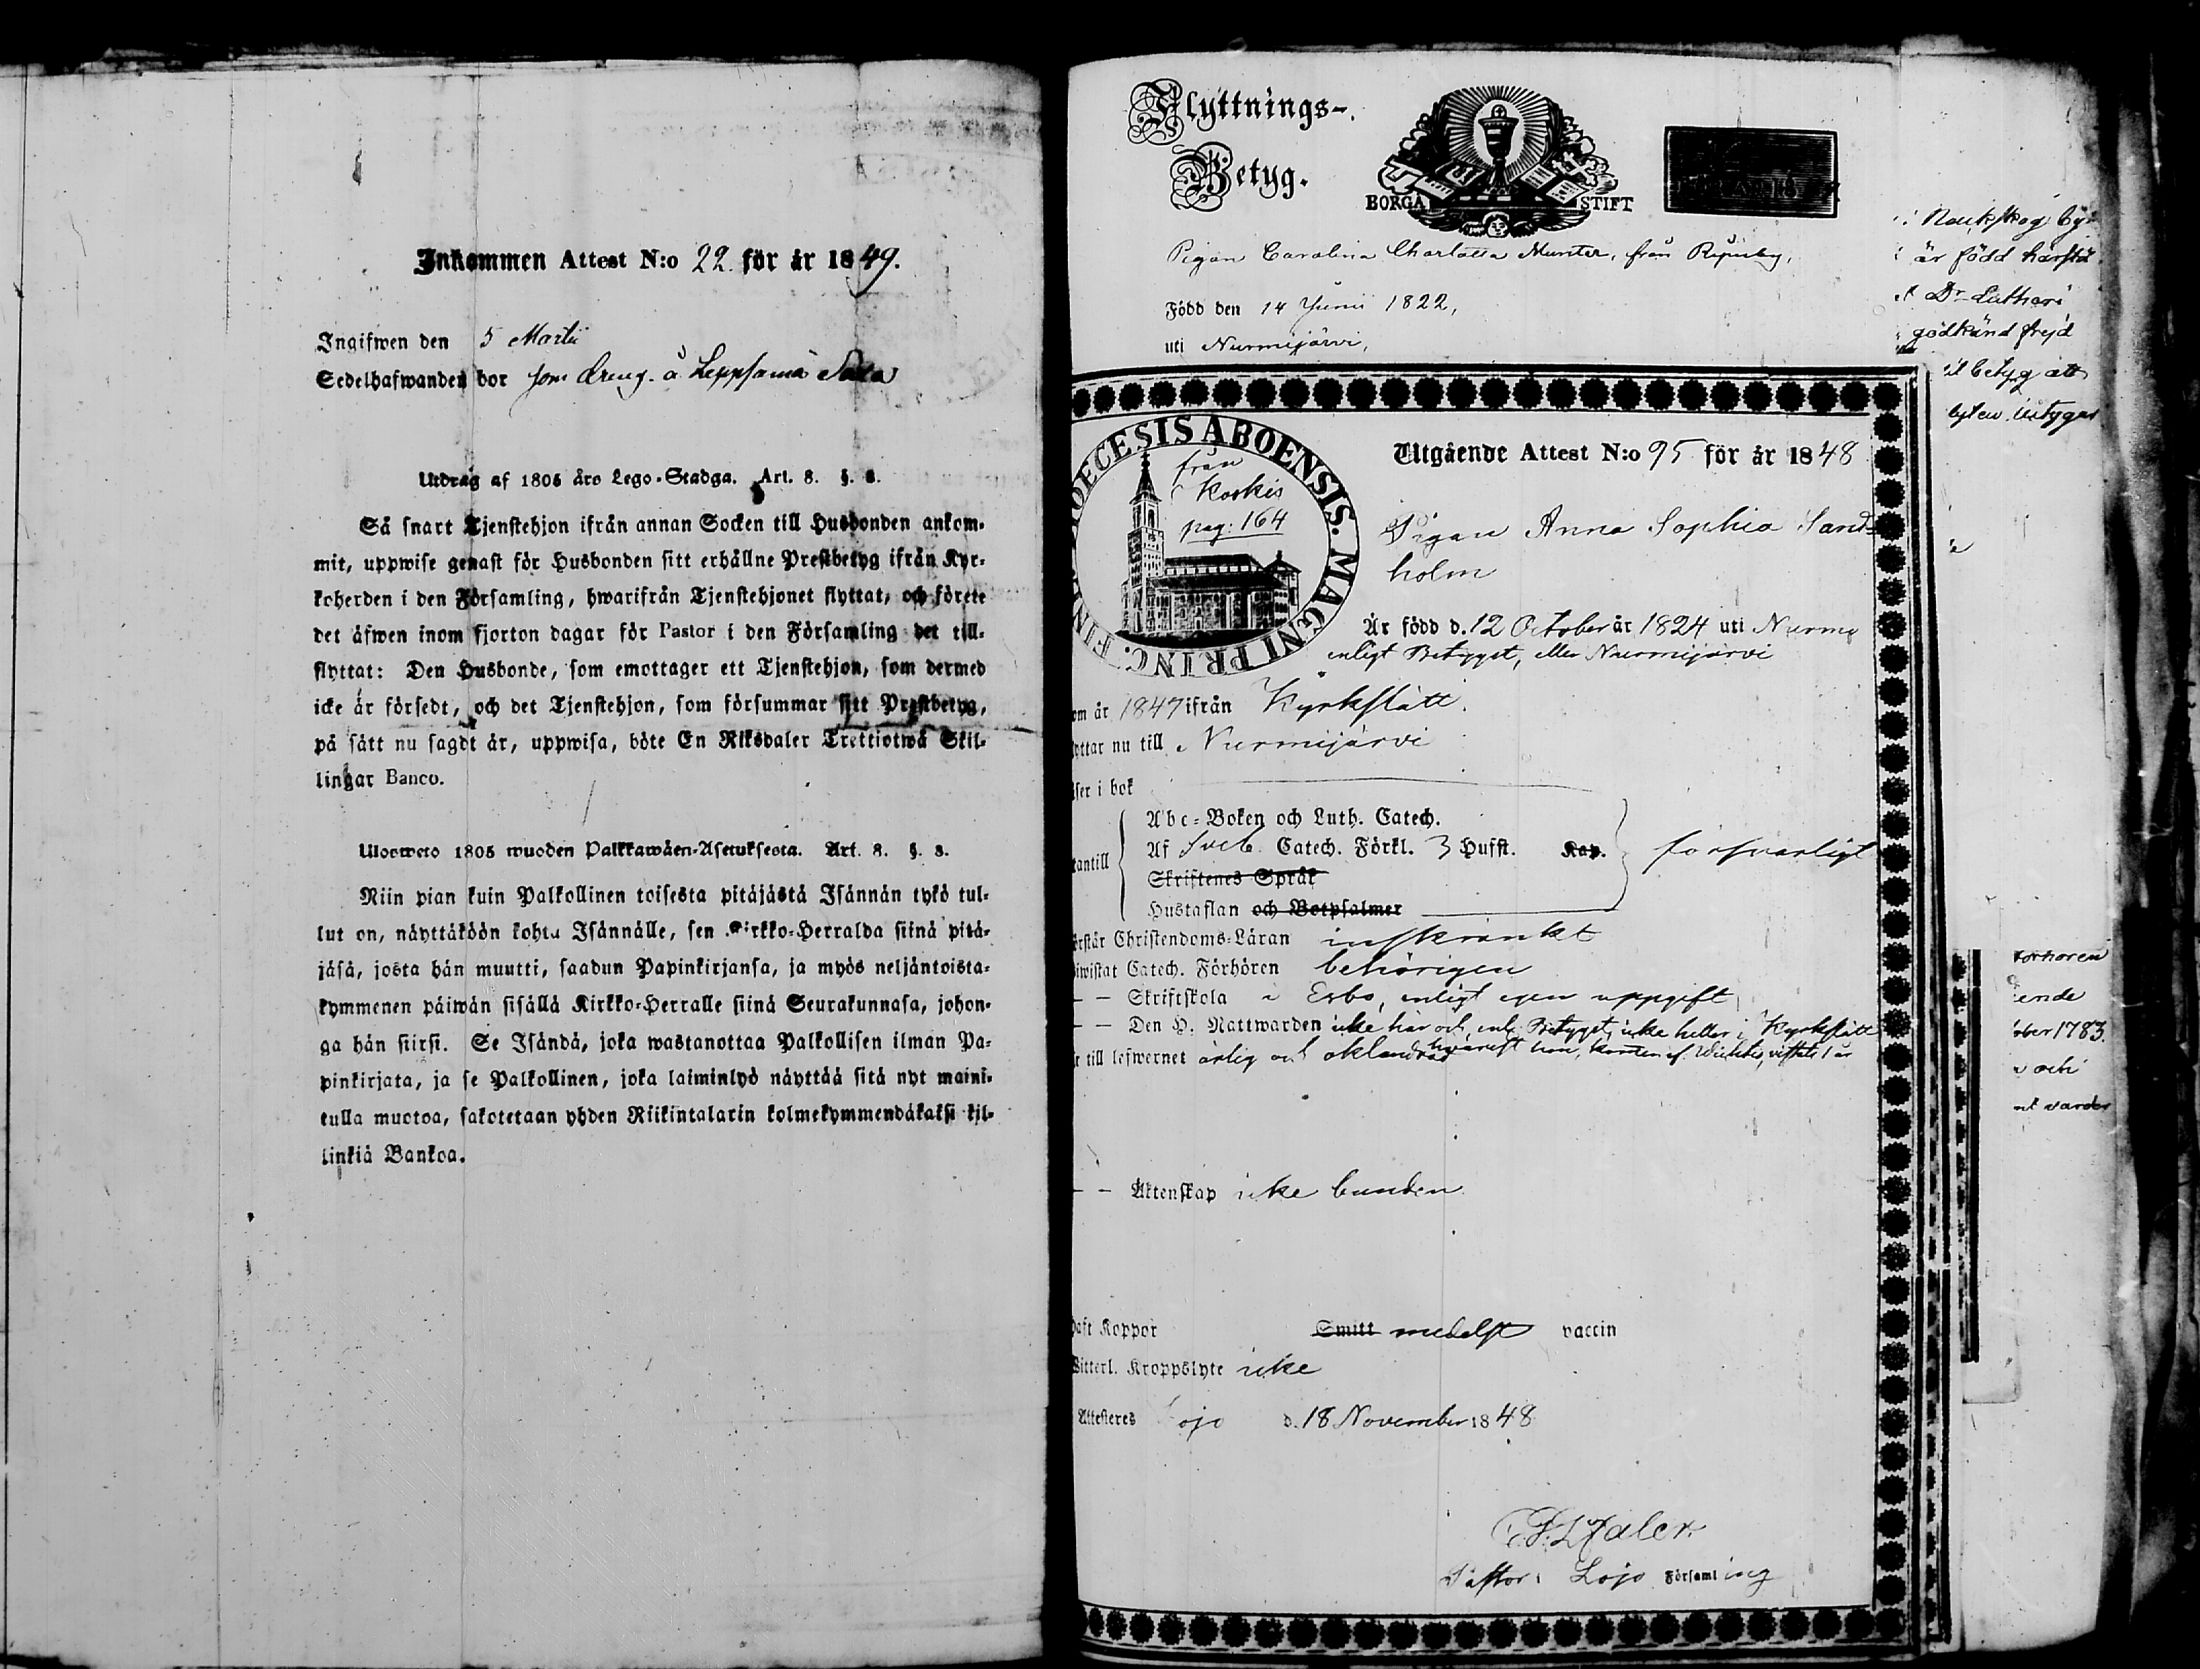 Inkommen Attest N:o 22 för år 1849.
Ingifwen den 5 Martii
Sedelhafwanden bor som dreng å Leppsamä
Utdrag af 1805 års Lego-Stadga. Art. 8. §. 8.
Så snart Tjenstehjon ifrån annan Socken till Husbonden ankom-
mit, uppwise genast för Husbonden sitt erhållne Prestbetyg ifrån Kyr-
koherden i den Församling, hwarifrån Tjenstehjonet flyttat, och förete
det äfwen inom fjorton dagar för Pastor i den Församling det till-
flyttat: Den Husbonde, som emottager ett Tjenstehjon, som dermed
icke är försedt, och det Tjenstehjon, som försummar sitt Prestbetyg,
på sätt nu sagdt är, uppwisa, böte En Riksdaler Trettiotwå Skil-
lingar Banco.
Ulosweto 1805 wuoden Palkkawäen-Asetuksesta. Art. 8. §. 8.
Niin pian kuin Palkollinen toisesta pitäjästä Isännän tykö tul-
lut on, näyttäköön kohta Isännälle, sen Kirkko-Herralda siinä pitä-
jäsä, josta hän muutti, saadun Papinkirjansa, ja myös neljäntoista-
kymmenen päiwän sisällä Kirkko-Herralle siinä Seurakunnasa, johon-
ga hän siirsi. Se Isändä, joka wastanottaa Palkollisen ilman Pa-
pinkirjata, ja se Palkollinen, joka laiminlyö näyttää sitä nyt maini-
tulla muotoa, sakotetaan yhden Riikintalarin kolmekymmendäkaksi kil-
linkiä Bankoa.
Flyttnings-
Betyg.
BORGÅ STIFT
Pigan Carolina Charlotta Munter, från
Född den 14 Junii 1822,
uti Nurmijärvi,
är född härstä
Dr Lutheri
godkänd frejd
betyg att
DIOECESIS ABOENSIS. MAGNI PRINC. FINL
från
Koskis
pag: 164
Utgående Attest N:o 95 för år 1848
Pigan Anna Sophia Sand-
holm
Är född d. 12 October år 1824 uti Nurmi
enligt Betyget, eller Nurmijärvi
om år 1847 ifrån Kyrkslätt.
yttar nu till Nurmijärvi
äser i bok
Abc-Boken och Luth. Catech.
utantill Af Sveb. Catech. Förkl. 3 Hufst. Kap. försvarligt
Skriftenes Språk
Hustaflan och Botpsalmer
örstår Christendoms-Läran inskränkt
biwistat Catech. Förhören behörigen
— — Skriftskola i Esbo, enligt egen uppgift
— — Den H. Nattwarden icke här och, enl. Betyget, icke heller i Kyrkslätt
hvarest hon, kommen af Wichtis, vistats 1 år
r till lefwernet ärlig och oklandrad
— — Äktenskap icke bunden
haft Koppor Smitt medelst vaccin
Witterl. Kroppslyte icke
Attesteres Lojo d. 18 November 1848
Pastor i Lojo Församling
förhören
ende
ober 1783.
och